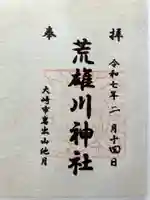 奉拝
令和七年二月十四日
荒雄川神社
大崎市岩出山池月